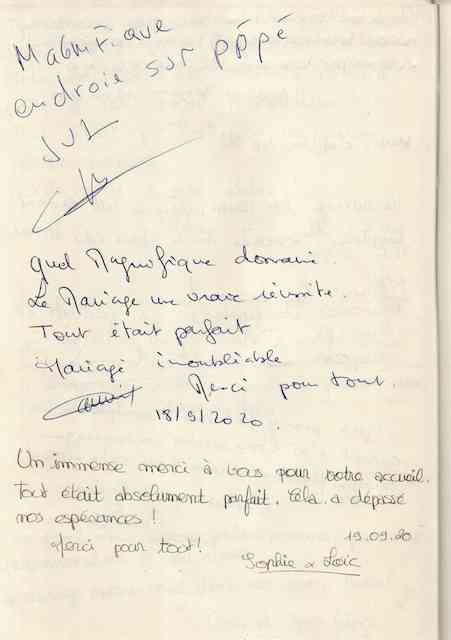 Magnifique
endroie sur pépé
JUL
Quel Magnifique domaine.
Le Mariage une vraie réussite.
Tout était parfait
Mariage inoubliable
Merci pour tout.
18/9/2020.
Un immense merci à vous pour votre accueil.
Tout était absolument parfait. Cela a dépassé
nos espérances !
Merci pour tout!
19.09.20
Sophie & Loïc